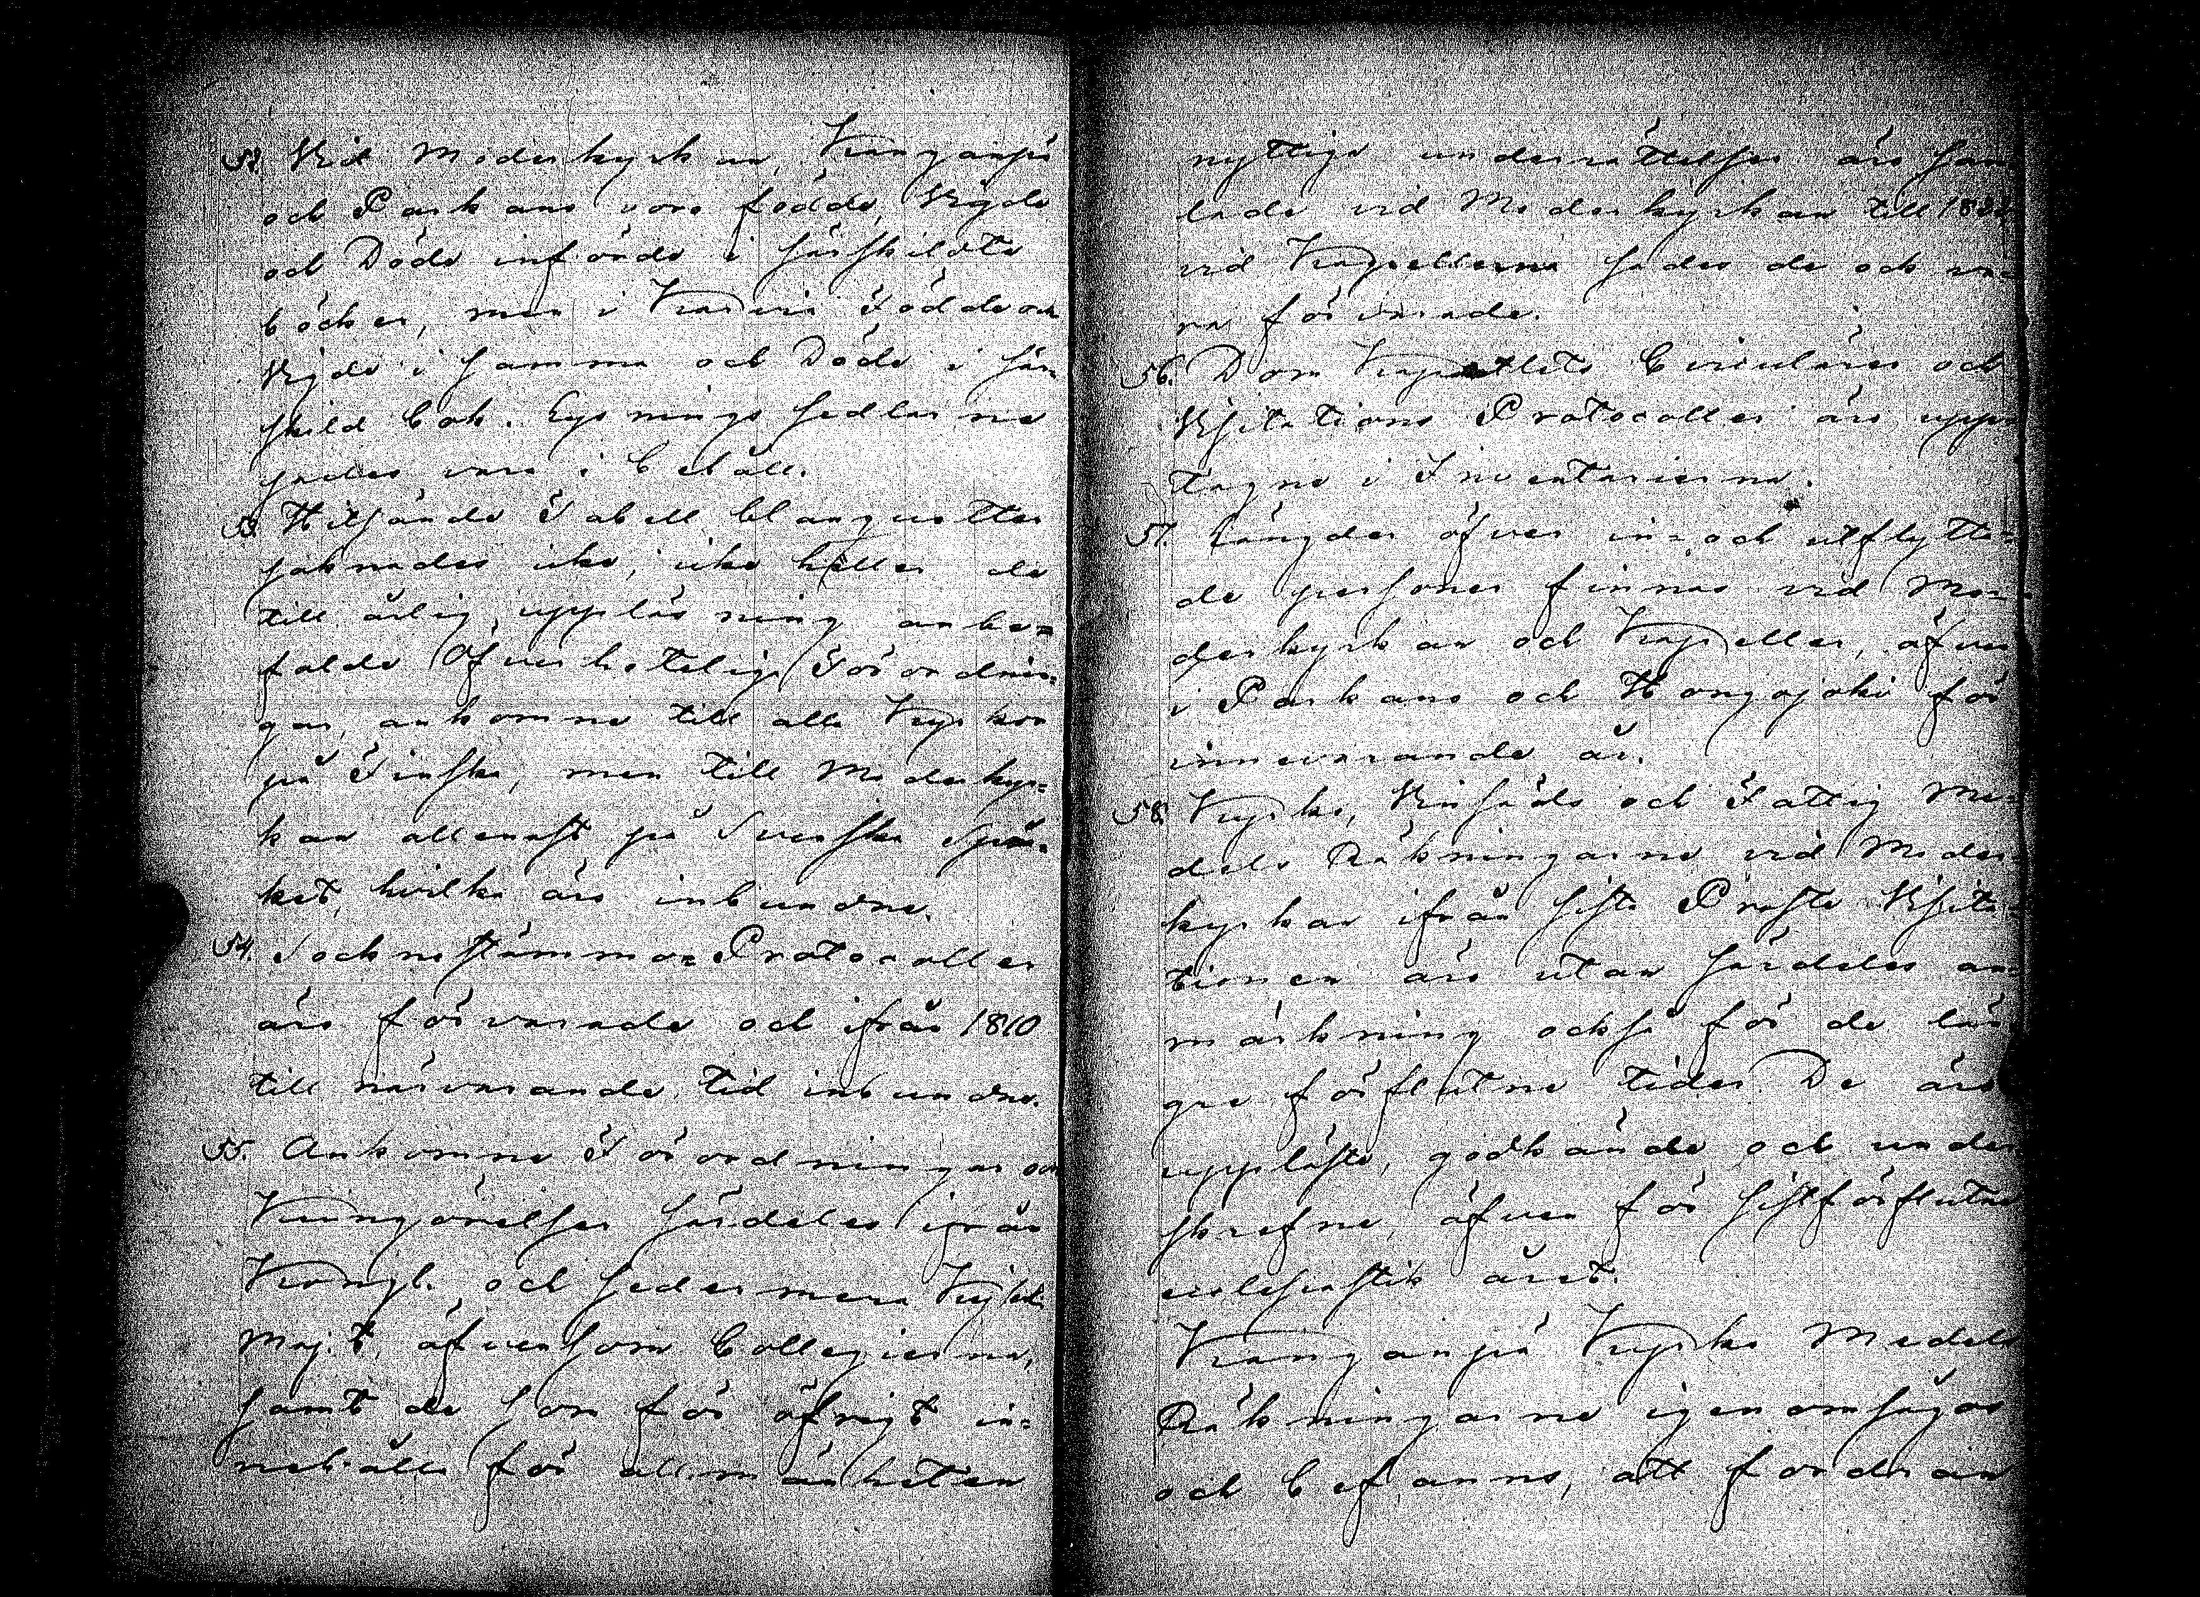 52. Vid Moderkyrkan, Kangaspä
och Parkano voro födde, Vigde
och Döde införde i särskildte
böcker, men i Karvia Födde och
Vigde i samma och Döde i sär=
skild bok. Lysnings sedlarne
sades vara i behåll.
53. Hithörande Tabell blanquetter
saknades icke, icke heller de
till årlig uppläsning anbe=
falde Öfverhetelige Förordnin=
gar, ankomne till alla Kyrkor
på Finska, men till Moderkyr=
kan allenast på Svenska Språ=
ket, hvilka äro inbundne.
54. Socknestämmo= Protocoller
äro förvarade och ifrån 1810
till närvarande tid inbundne.
55. Ankomne Förordningar och
Kungörelser särdeles ifrån
Kongl. och sedermera Kejserl.
Maj:t, äfvensom Collegierna,
samt de som för öfrigt in=
nehålla för allmänheten
nyttige underrättelser äro sam
lade vid Moderkyrkan till
vid Kapellerna sades de ock va
ra förvarade.
56. Dom Kapitlets Circulärer och
Visitations Protocoller äro upp=
tagne i Inventarierna.
57. Längder öfver in= och utflytta=
de personer finnas vid Mo=
derkyrkan och Kapeller, äfven
i Parkano och Hongojoki för
innevarande år.
58. Kyrko, Vinsäds och Fattig Me=
dels Räkningarne vid Moder=
kyrkan ifrån sista Prosta Visita=
tionen äro utan särdeles an=
märkning också för de län
gre förflutne tider. De äro
uppläste, godkände och under
skrefne, äfven för sistförflutne
ecclesiastik året.
Kangaspä Kyrko Medels
Räkningarne igenomsågos
och befanns, att fordran